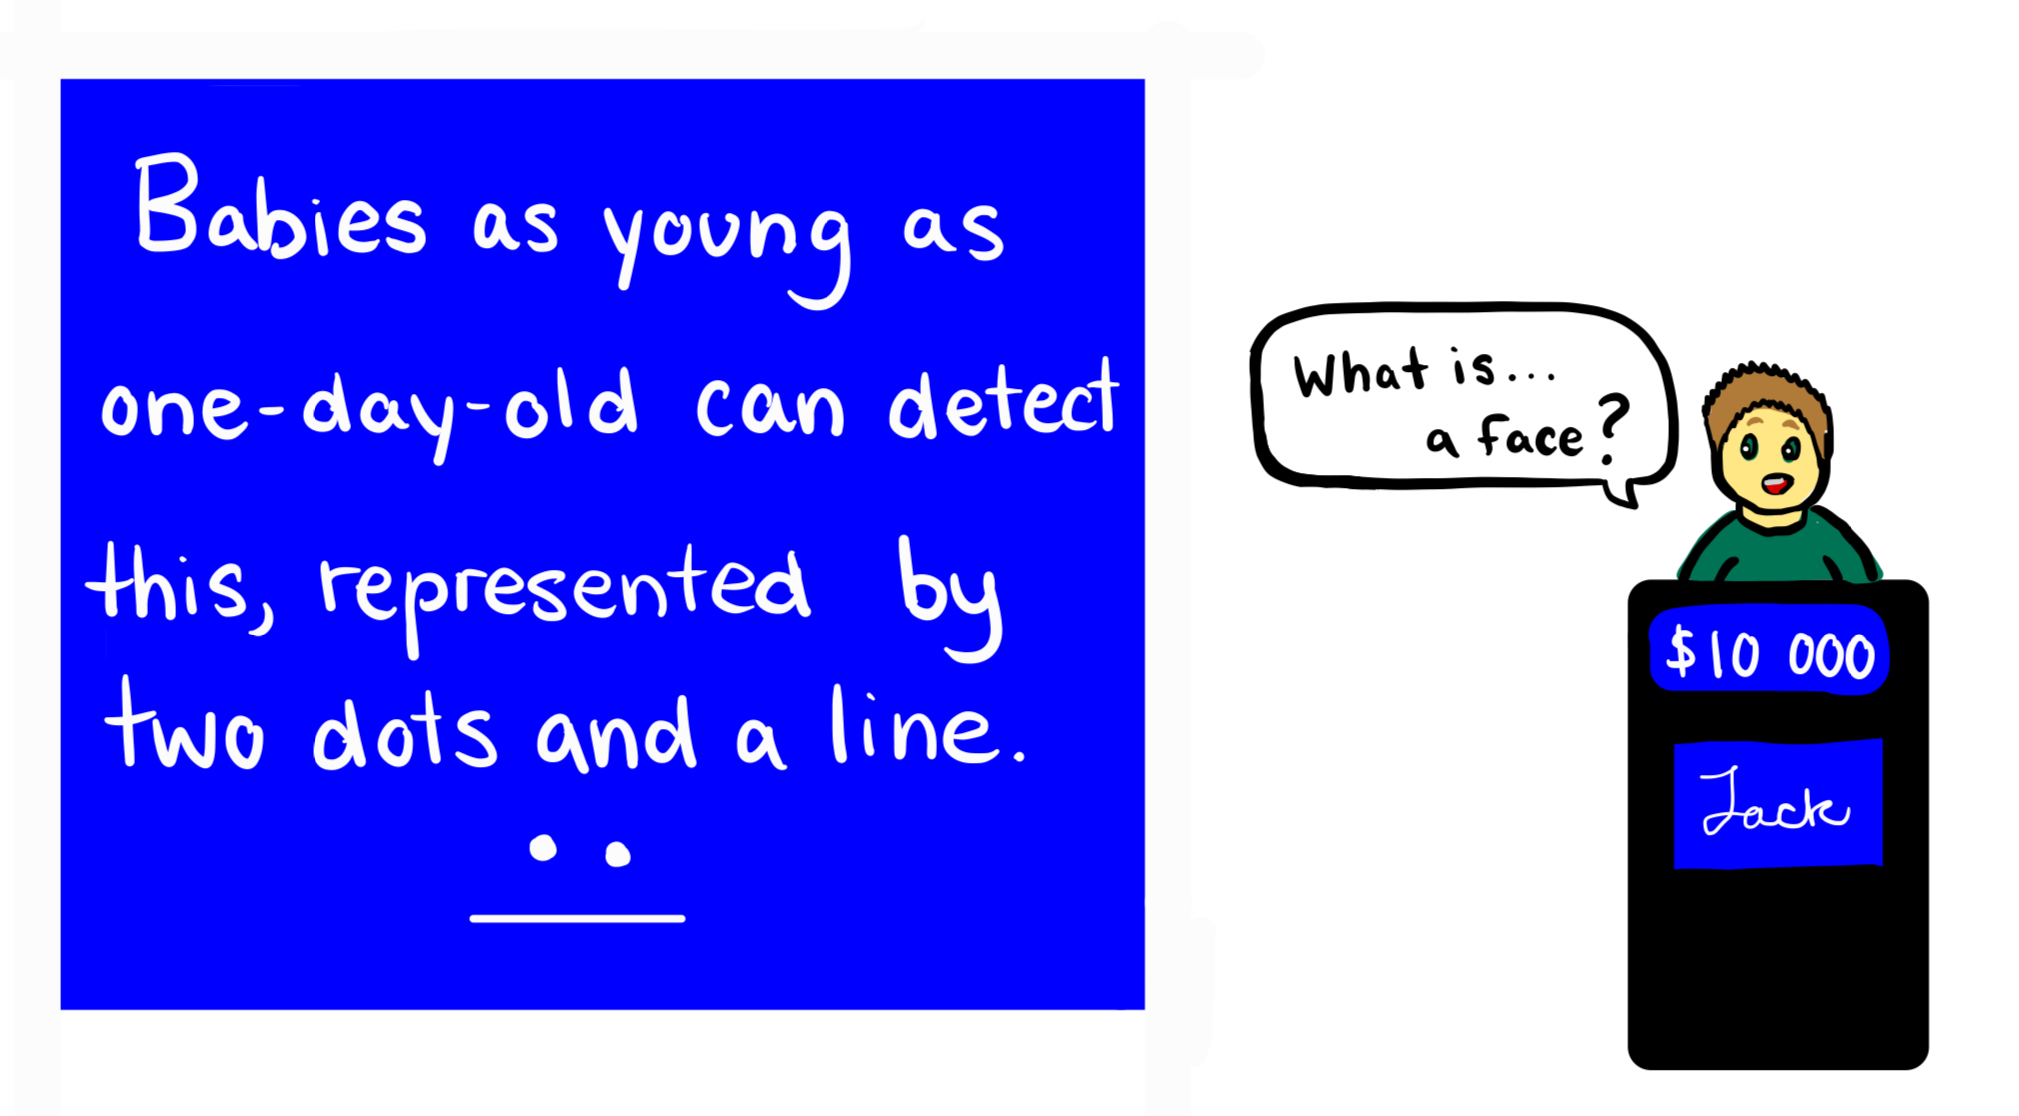 Babies as young as
one-day-old can detect
this, represented by
two dots and a line.
What is...
a face?
$10 000
Jack